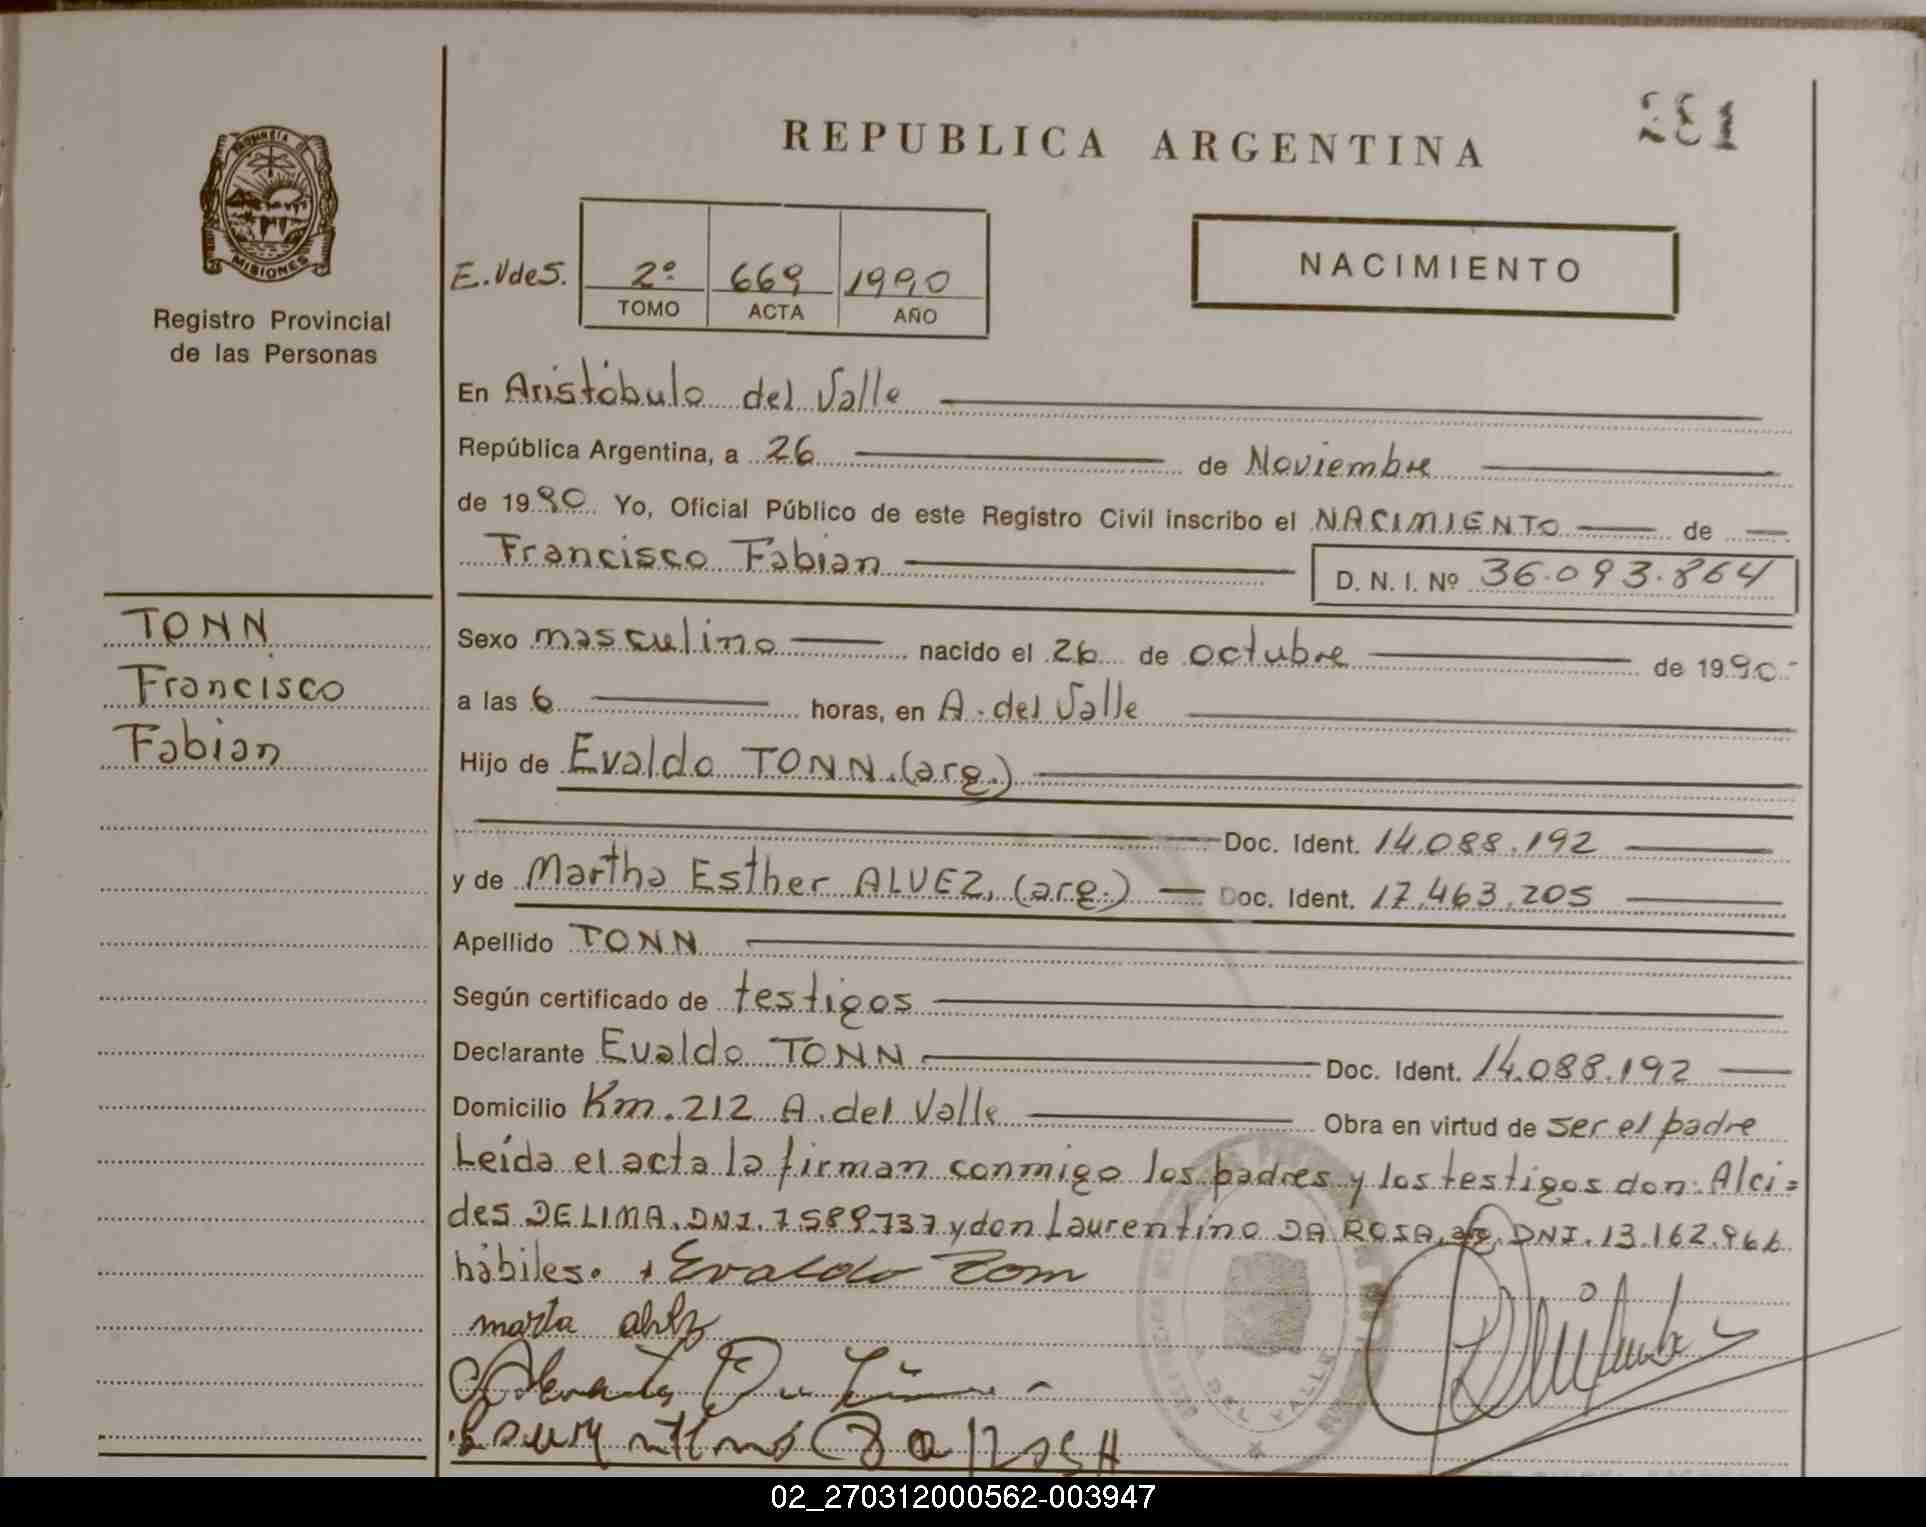 281
REPUBLICA ARGENTINA
PROVINCIA DE
MISIONES
Registro Provincial
de las Personas
E.VdeS. 2º 669 1990
TOMO ACTA AÑO
NACIMIENTO
En Aristóbulo del Valle
República Argentina, a 26 de Noviembre
de 1990 Yo, Oficial Público de este Registro Civil inscribo el NACIMIENTO de
Francisco Fabian D. N. I. Nº 36.093.864
TONN
Francisco
Fabian
Sexo masculino nacido el 26 de octubre de 1990
a las 6 horas, en A. del Valle
Hijo de Evaldo TONN. (arg.)
Doc. Ident. 14.088.192
y de Martha Esther ALVEZ, (arg.) Doc. Ident. 17.463.205
Apellido TONN
Según certificado de testigos
Declarante Evaldo TONN Doc. Ident. 14.088.192
Domicilio Km. 212 A. del Valle Obra en virtud de ser el padre
Leída el acta la firman conmigo los padres y los testigos don: Alci=
des DELIMA. DNI. 7.589.737 y don Laurentino DA ROSA, DNI. 13.162.966
hábiles. Evaldo Tom
marta
DEL VALLE
02_270312000562-003947